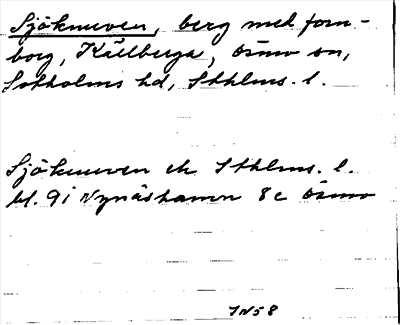 Sjökneven, berg med forn-
borg, Källberga, Ösmo sn,
Sotholms hd, Sthlms. l.
Sjökneven ek Sthlms. l.
bl. 9i Nynäshamn 8c Ösmo
IN58